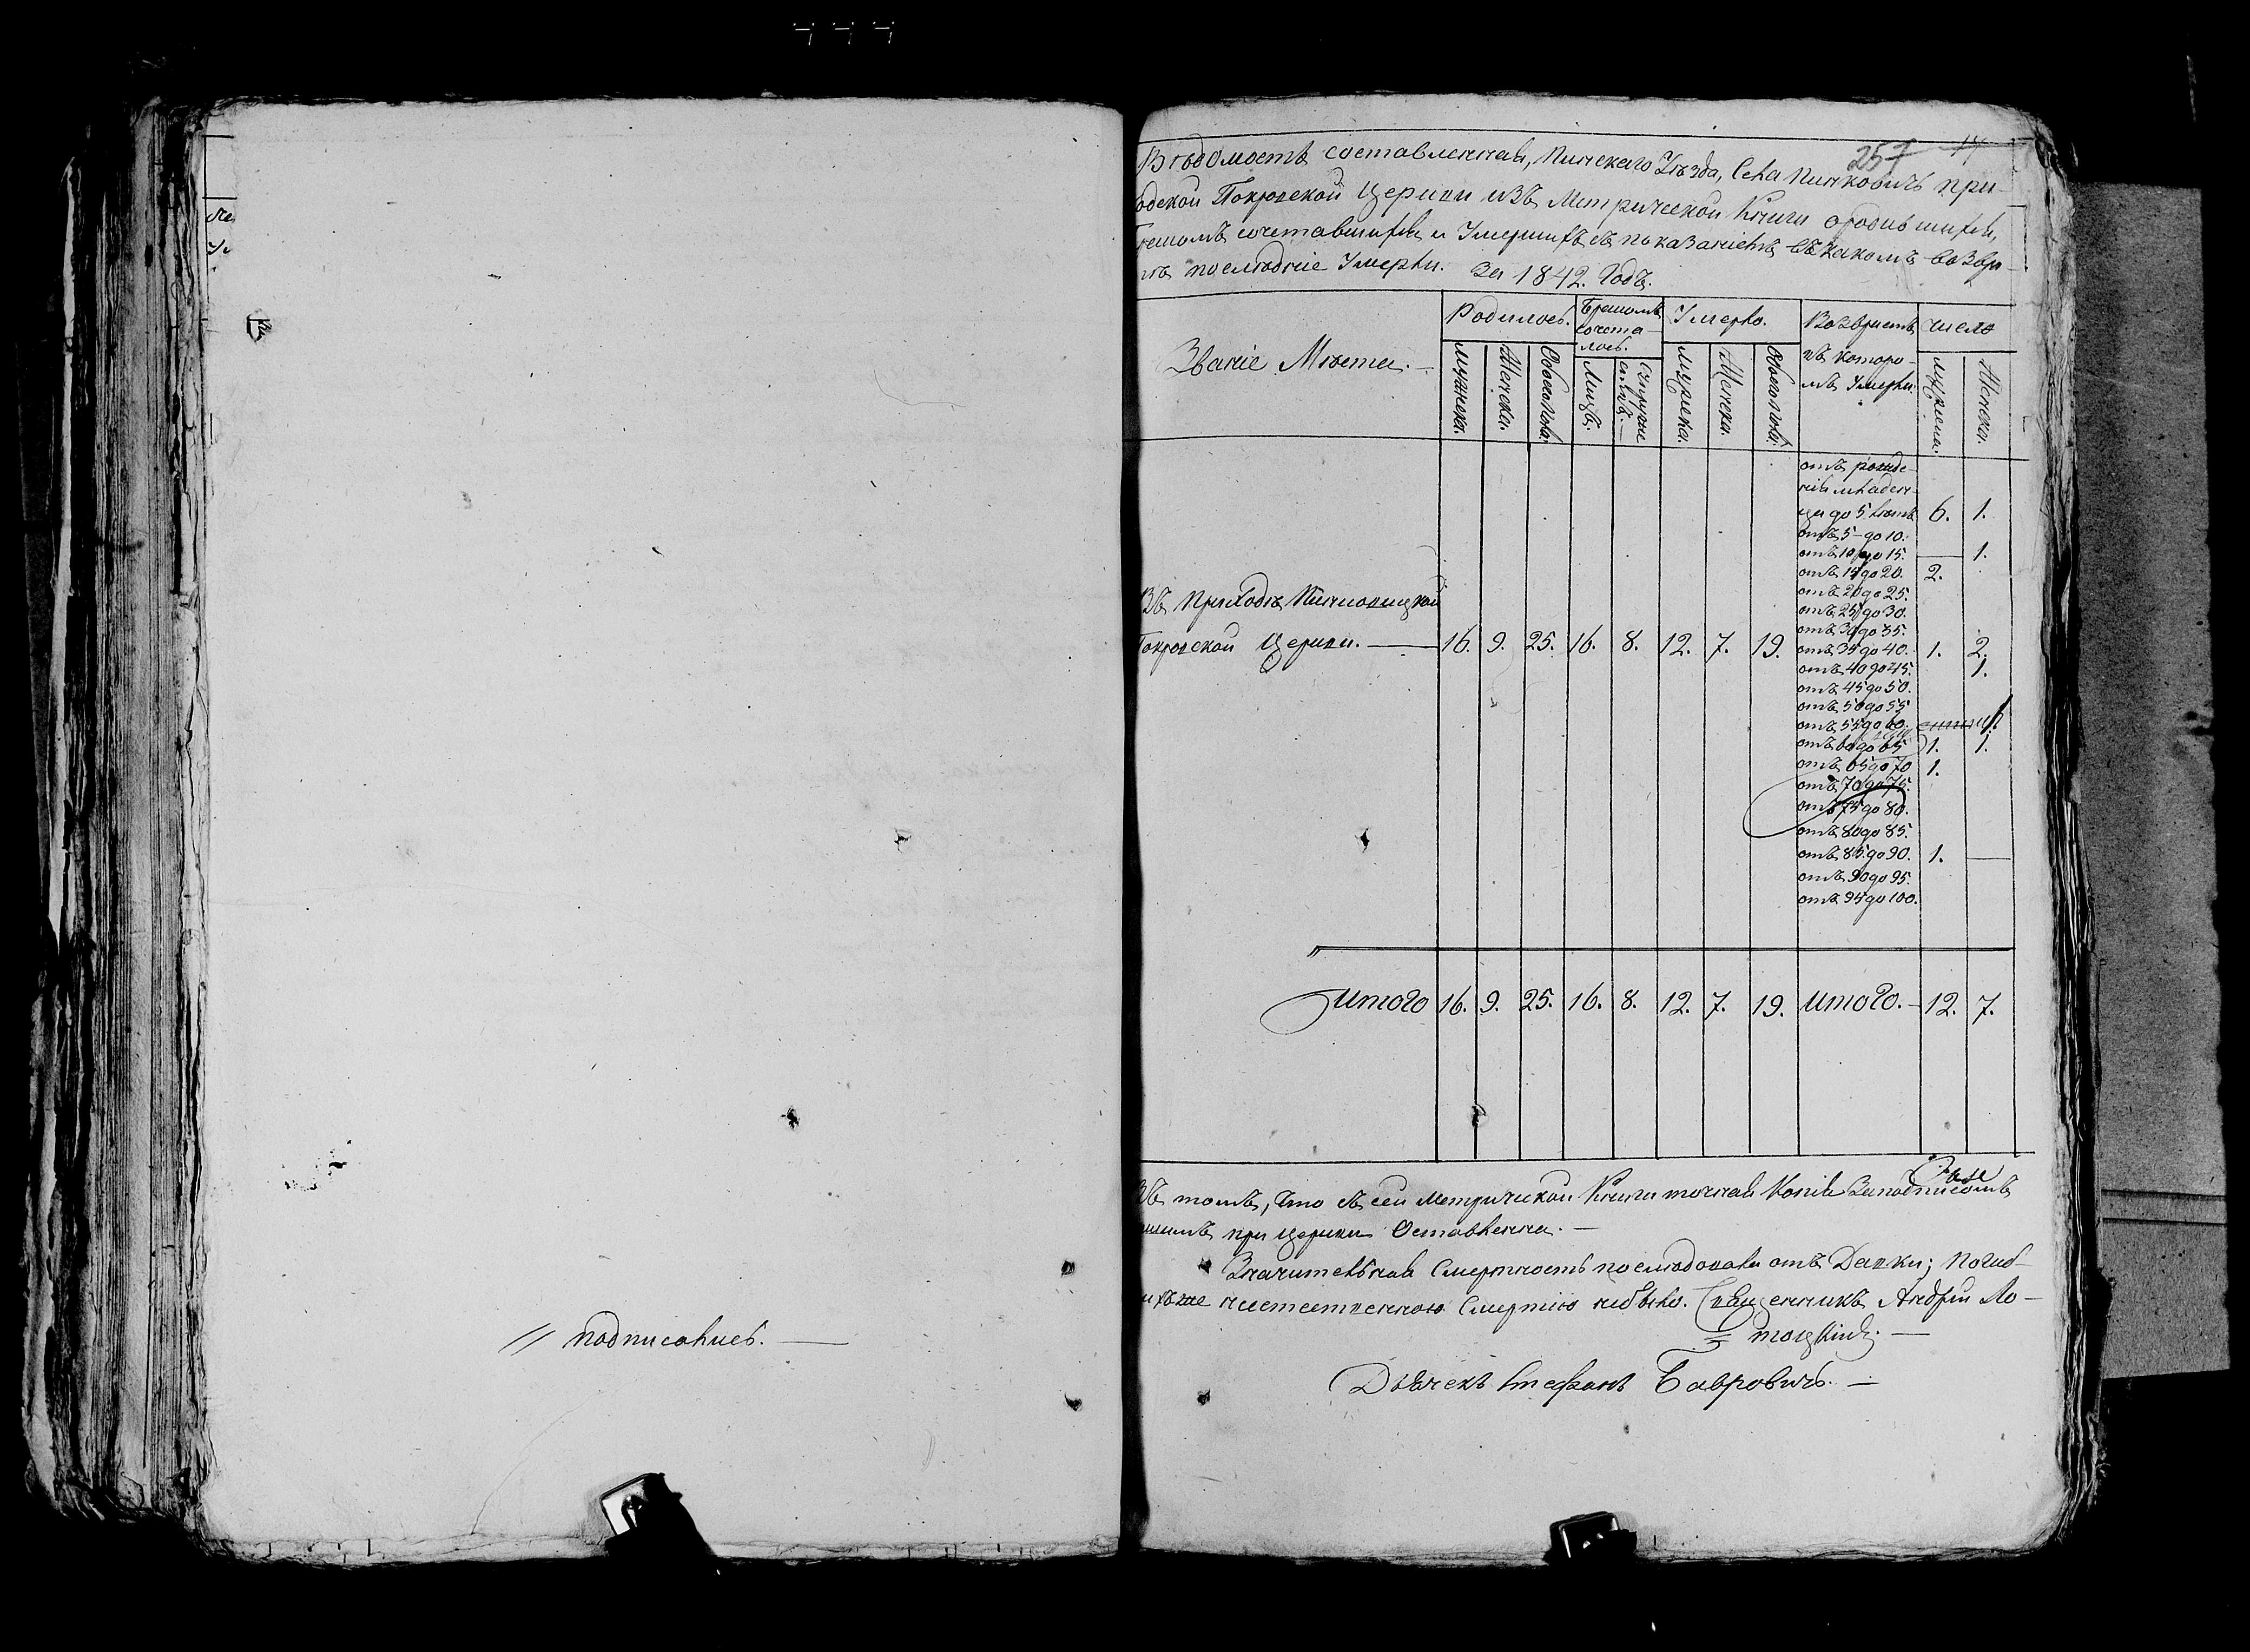 подписались.
257
Вѣдомость составленная, Пинскаго Уѣзда, Села Пинковичъ при-
одской Покровской Церкви изъ Метрической Книги о родившихся,
бракомъ сочетавшихся и Умершихъ съ показаніемъ въ какомъ возра-
послѣдніе Умерли. За 1842. Годъ.
Званіе Мѣста.
Родилось.
Бракомъ сочета-
лось.
Умерло.
Возврастъ
въ которо-
мъ Умерли.
число
Мужеска.
Женска.
Обоего пола.
Лицъ.
Супруже
ствъ.
Мужеска.
Женска.
Обоего пола.
Мужеска.
Женска.
отъ рожде-
нія младен-
ца до 5 лѣтъ 6. 1.
отъ 5 до 10.
отъ 10 до 15. — 1.
отъ 15 до 20. 2.
отъ 20 до 25.
отъ 25 до 30.
отъ 30 до 35.
Въ Приходѣ Пинковицкой
Покровской Церкви. — 16. 9. 25. 16. 8. 12. 7. 19. отъ 35 до 40. 1. 2.
отъ 40 до 45. 1.
отъ 45 до 50.
отъ 50 до 55
отъ 55 до 60.
отъ 60 до 65 1. 1.
отъ 65 до 70 1.
отъ 70 до 75.
отъ 75 до 80.
отъ 80 до 85.
отъ 85 до 90. 1. —
отъ 90 до 95.
отъ 95 до 100.
Итого 16. 9. 25. 16. 8. 12. 7. 19. Итого. — 12. 7.
Въ томъ, что съ сей Метрической Книги точная Копія За подписомъ
нашимъ при Церкви Оставленна. —
Значительная Смертность послѣдовала отъ Давки; Погиб-
ихъ же неестественною Смертію небыло. Священникъ Андрей Ло-
тоцкій. —
Дьячекъ Стефанъ Бавровичъ. —